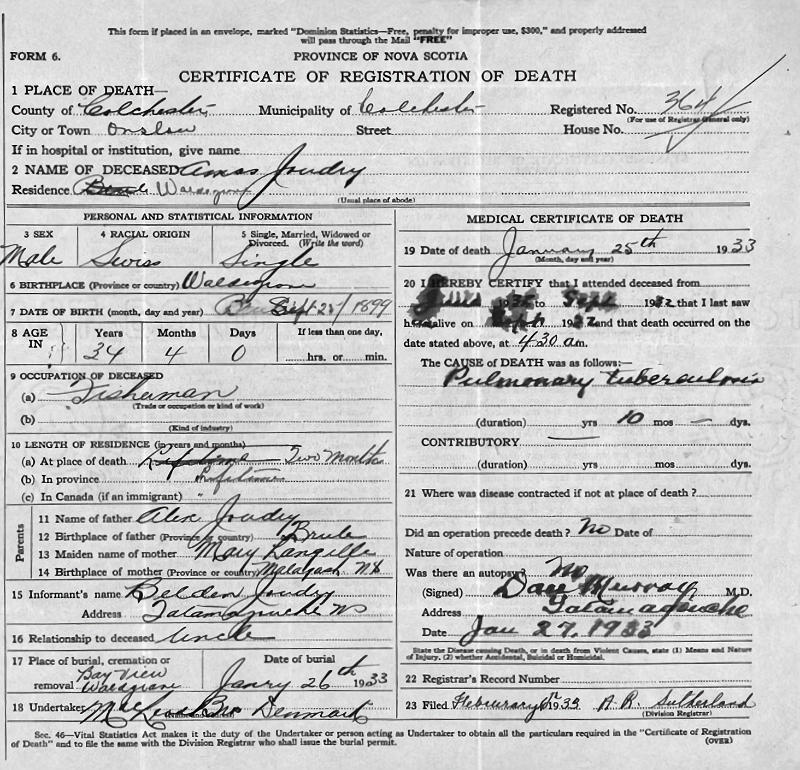 This form if placed in an envelope, marked "Dominion Statistics—Free, penalty for improper use, $300," and properly addressed
will pass through the Mail "FREE"
FORM 6.
PROVINCE OF NOVA SCOTIA
CERTIFICATE OF REGISTRATION OF DEATH
1 PLACE OF DEATH—
County of Colchester Municipality of Colchester Registered No. 364
(For use of Registrar General only)
City or Town Onslow Street House No.
If in hospital or institution, give name
2 NAME OF DECEASED Amos Joudry
Residence Waldegrave
(Usual place of abode)
PERSONAL AND STATISTICAL INFORMATION
3 SEX 4 RACIAL ORIGIN 5 Single, Married, Widowed or Divorced. (Write the word)
Male Swiss Single
6 BIRTHPLACE (Province or country) Waldegrave
7 DATE OF BIRTH (month, day and year) Sept 25/1899
8 AGE IN Years Months Days If less than one day,
34 4 0 hrs. or min.
9 OCCUPATION OF DECEASED
(a) Fisherman
(Trade or occupation or kind of work)
(b)
(Kind of industry)
10 LENGTH OF RESIDENCE (in years and months)
(a) At place of death Lifetime Two Months
(b) In province Lifetime
(c) In Canada (if an immigrant) "
Parents
11 Name of father Alex Joudry
12 Birthplace of father (Province or country) Brule
13 Maiden name of mother Mary Langille
14 Birthplace of mother (Province or country) Malagash NS
15 Informant's name Belden Joudry
Address Tatamagouche NS
16 Relationship to deceased Uncle
17 Place of burial, cremation or removal Date of burial
Bay View
Waldegrave Janry 26th 1933
18 Undertaker Denmark
MEDICAL CERTIFICATE OF DEATH
19 Date of death January 25th 1933
(Month, day and year)
20 I HEREBY CERTIFY that I attended deceased from
to Sept 1932 that I last saw
h alive on Sept 1932 and that death occurred on the
date stated above, at 4.30 am.
The CAUSE of DEATH was as follows:—
Pulmonary tuberculosis
(duration) yrs 10 mos — dys.
CONTRIBUTORY
(duration) yrs. mos. dys.
21 Where was disease contracted if not at place of death?
Did an operation precede death? No Date of
Nature of operation
Was there an autopsy? No
(Signed) Dan Murray M.D.
Address Tatamagouche
Date Jan 27, 1933
State the Disease causing Death, or in death from Violent Causes, state (1) Means and Nature
of Injury, (2) whether Accidental, Suicidal or Homicidal.
22 Registrar's Record Number
23 Filed February 1933 A. R. Sutherland
(Division Registrar)
Sec. 46—Vital Statistics Act makes it the duty of the Undertaker or person acting as Undertaker to obtain all the particulars required in the "Certificate of Registration
of Death" and to file the same with the Division Registrar who shall issue the burial permit.
(OVER)